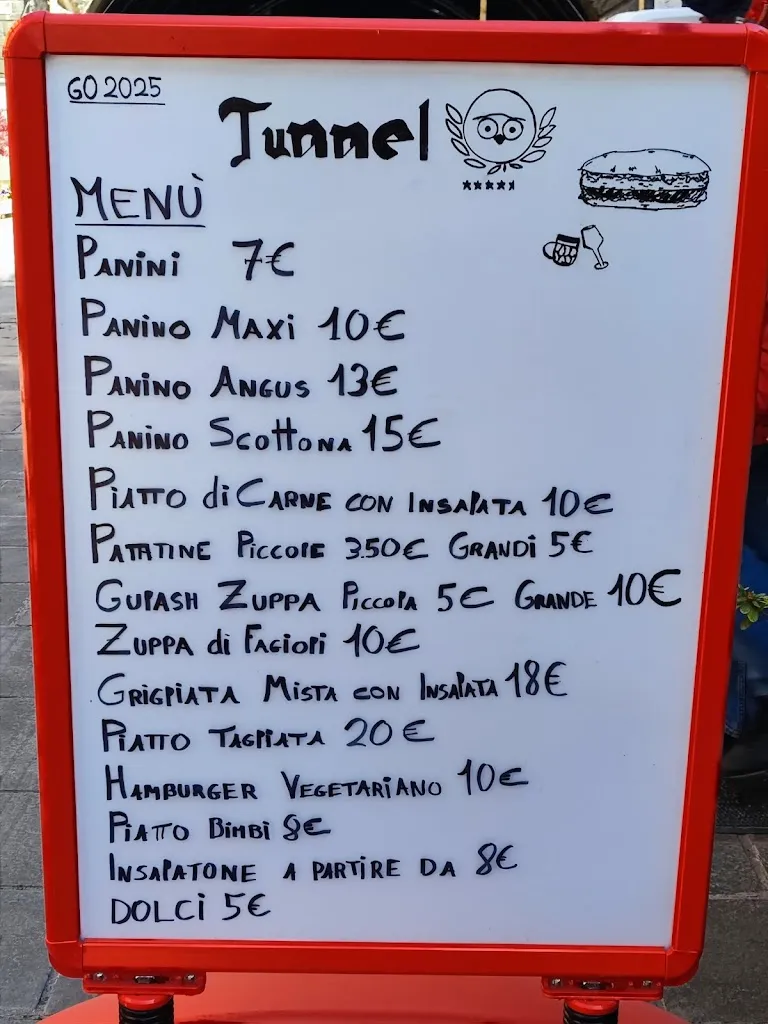 GO 2025
Tunnel
MENÙ
PANINI 7€
PANINO MAXI 10€
PANINO ANGUS 13€
PANINO SCOTTONA 15€
PIATTO di CARNE CON INSALATA 10€
PATATINE PICCOLE 3.50€ GRANDI 5€
GULASH ZUPPA PICCOLA 5€ GRANDE 10€
ZUPPA di FAGIOLI 10€
GRIGLIATA MISTA CON INSALATA 18€
PIATTO TAGLIATA 20€
HAMBURGER VEGETARIANO 10€
PIATTO BIMBI 8€
INSALATONE A PARTIRE DA 8€
DOLCI 5€